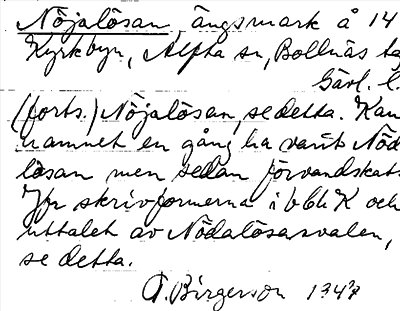 Nöjalösan, ängsmark å 14
Kyrkbyn, Alfta sn, Bollnäs
Gävl. l.
(forts.) Nöjalösan, se detta. Kan
namnet en gång ha varit Nöd
lösan men sedan förvandskats
Jfr skrivformerna i bbl K och
uttalet av Nödalösasvalen,
se detta.
T. Birgerson 1947